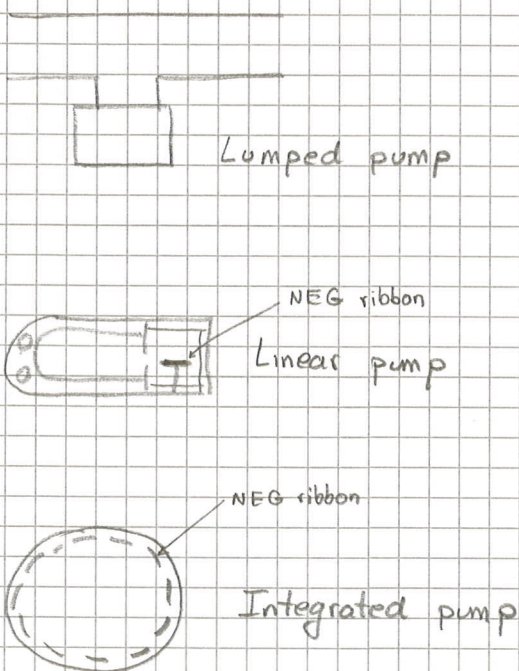 Lumped pump
NEG ribbon
Linear pump
NEG ribbon
Integrated pump